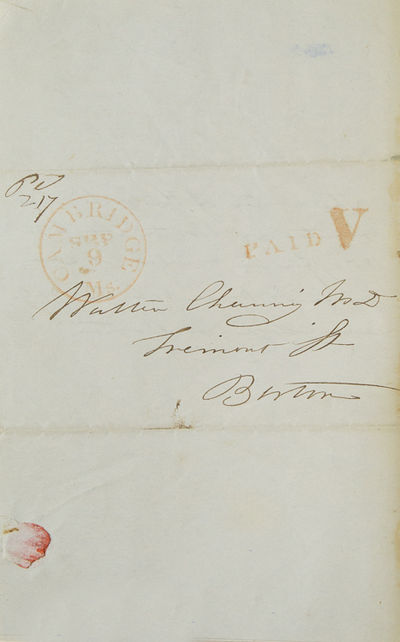 Pd
217
CAMBRIDGE
SEP
9
Ms.
PAID V
Walter Channing M.D
Tremont St
Boston